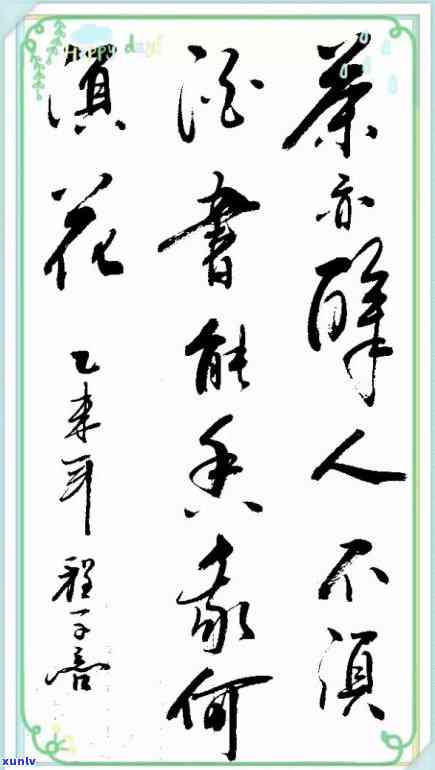 Happy day!
茶亦醉人不須
酒書能香我何
須花
乙未年 程子
xunlv